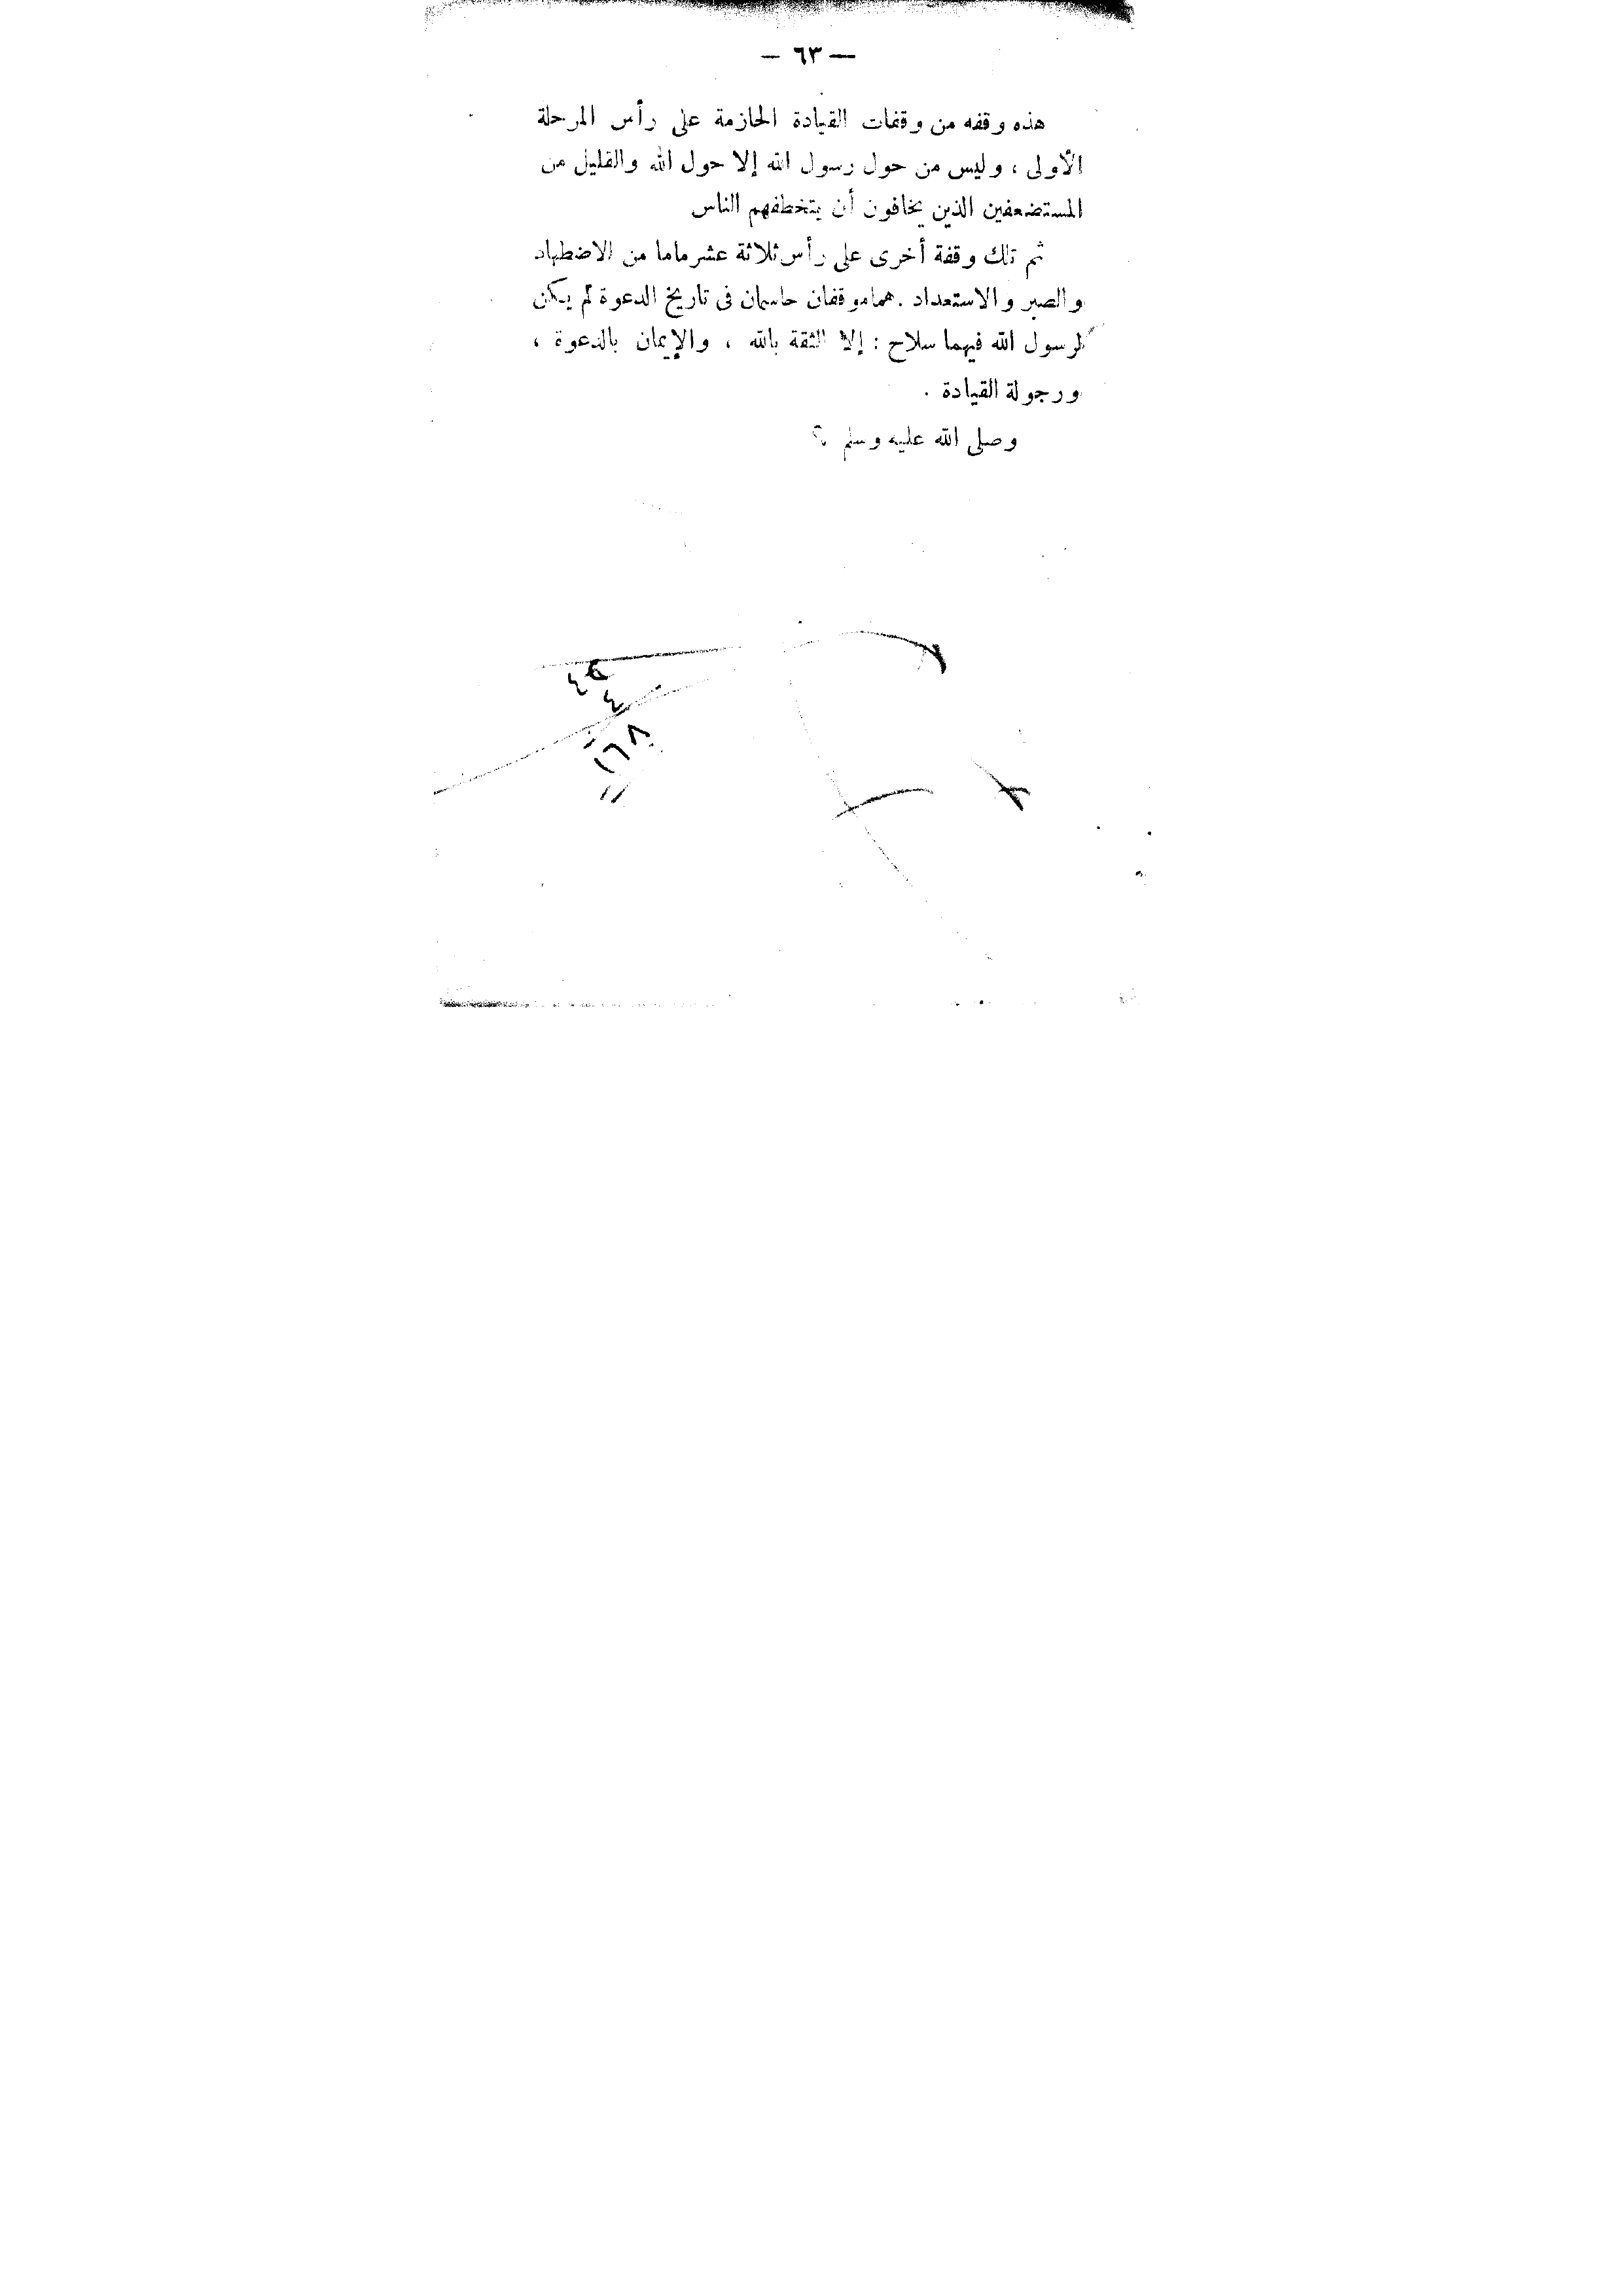 — ٦٣ —
هذه وقفه من وقفات القيادة الحازمة على رأس المرحلة
الأولى ، وليس من حول رسول الله إلا حول الله والقليل من
المستضعفين الذين يخافون أن يتخطفهم الناس
ثم تلك وقفة أخرى على رأس ثلاثة عشر ماما من الاضطهاد
والصبر والاستعداد . هما موقفان حاسمان فى تاريخ الدعوة لم يكن
لرسول الله فيهما سلاح : إلا الثقة بالله ، والإيمان بالدعوة ،
ورجولة القيادة .
وصلى الله عليه وسلم